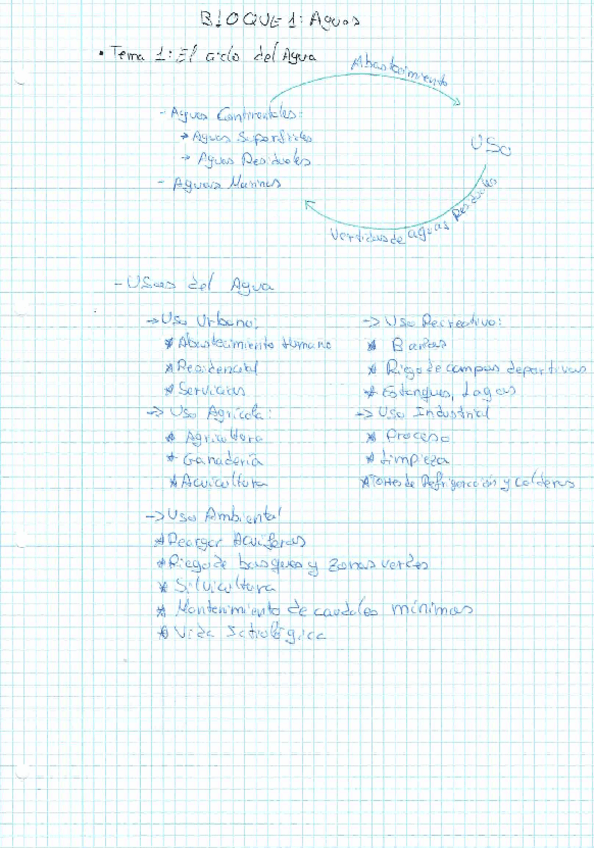 BLOQUE 1: Aguas
• Tema 1: El ciclo del Agua
Abastecimiento
- Aguas Continentales:
→ Aguas Superficiales
→ Aguas Residuales
- Aguas Marinas
USO
Vertidos de aguas Residuales
- Usos del Agua
→ Uso Urbano:
* Abastecimiento Humano
* Residencial
* Servicios
→ Uso Agrícola:
* Agricultura
* Ganadería
* Acuicultura
→ Uso Recreativo:
* Baños
* Riego de campos deportivos
* Estanques, Lagos
→ Uso Industrial
* Proceso
* Limpieza
* Torres de Refrigeración y calderas
→ Uso Ambiental
* Recargar Acuíferos
* Riego de bosques y zonas verdes
* Silvicultura
* Mantenimiento de caudales mínimos
* Vida